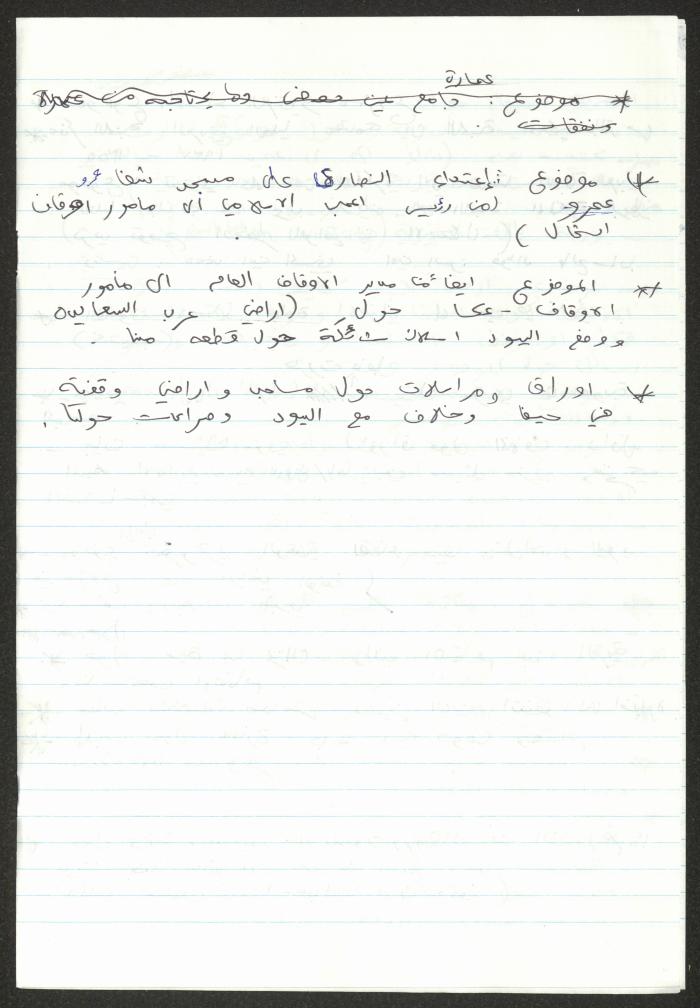 عمارة
* موضوع : جامع عين حوض وما يحتاجه من عمارة
ونفقات
* موضوع إعتداء النصارى على مسجد شفا عمرو
( من رئيس المجلس الاسلامي الى مأمور اوقاف
الشمال )
* الموضوع ايضا من مدير الاوقاف العام الى مأمور
الاوقاف - عكا حول ( اراضي عرب السعايده
ووضع اليهود اسلاك شائكة حول قطعه منها .
* اوراق ومراسلات حول مساحه واراضي وقفية
في حيفا وخلاف مع اليهود ومراسلات حولها .